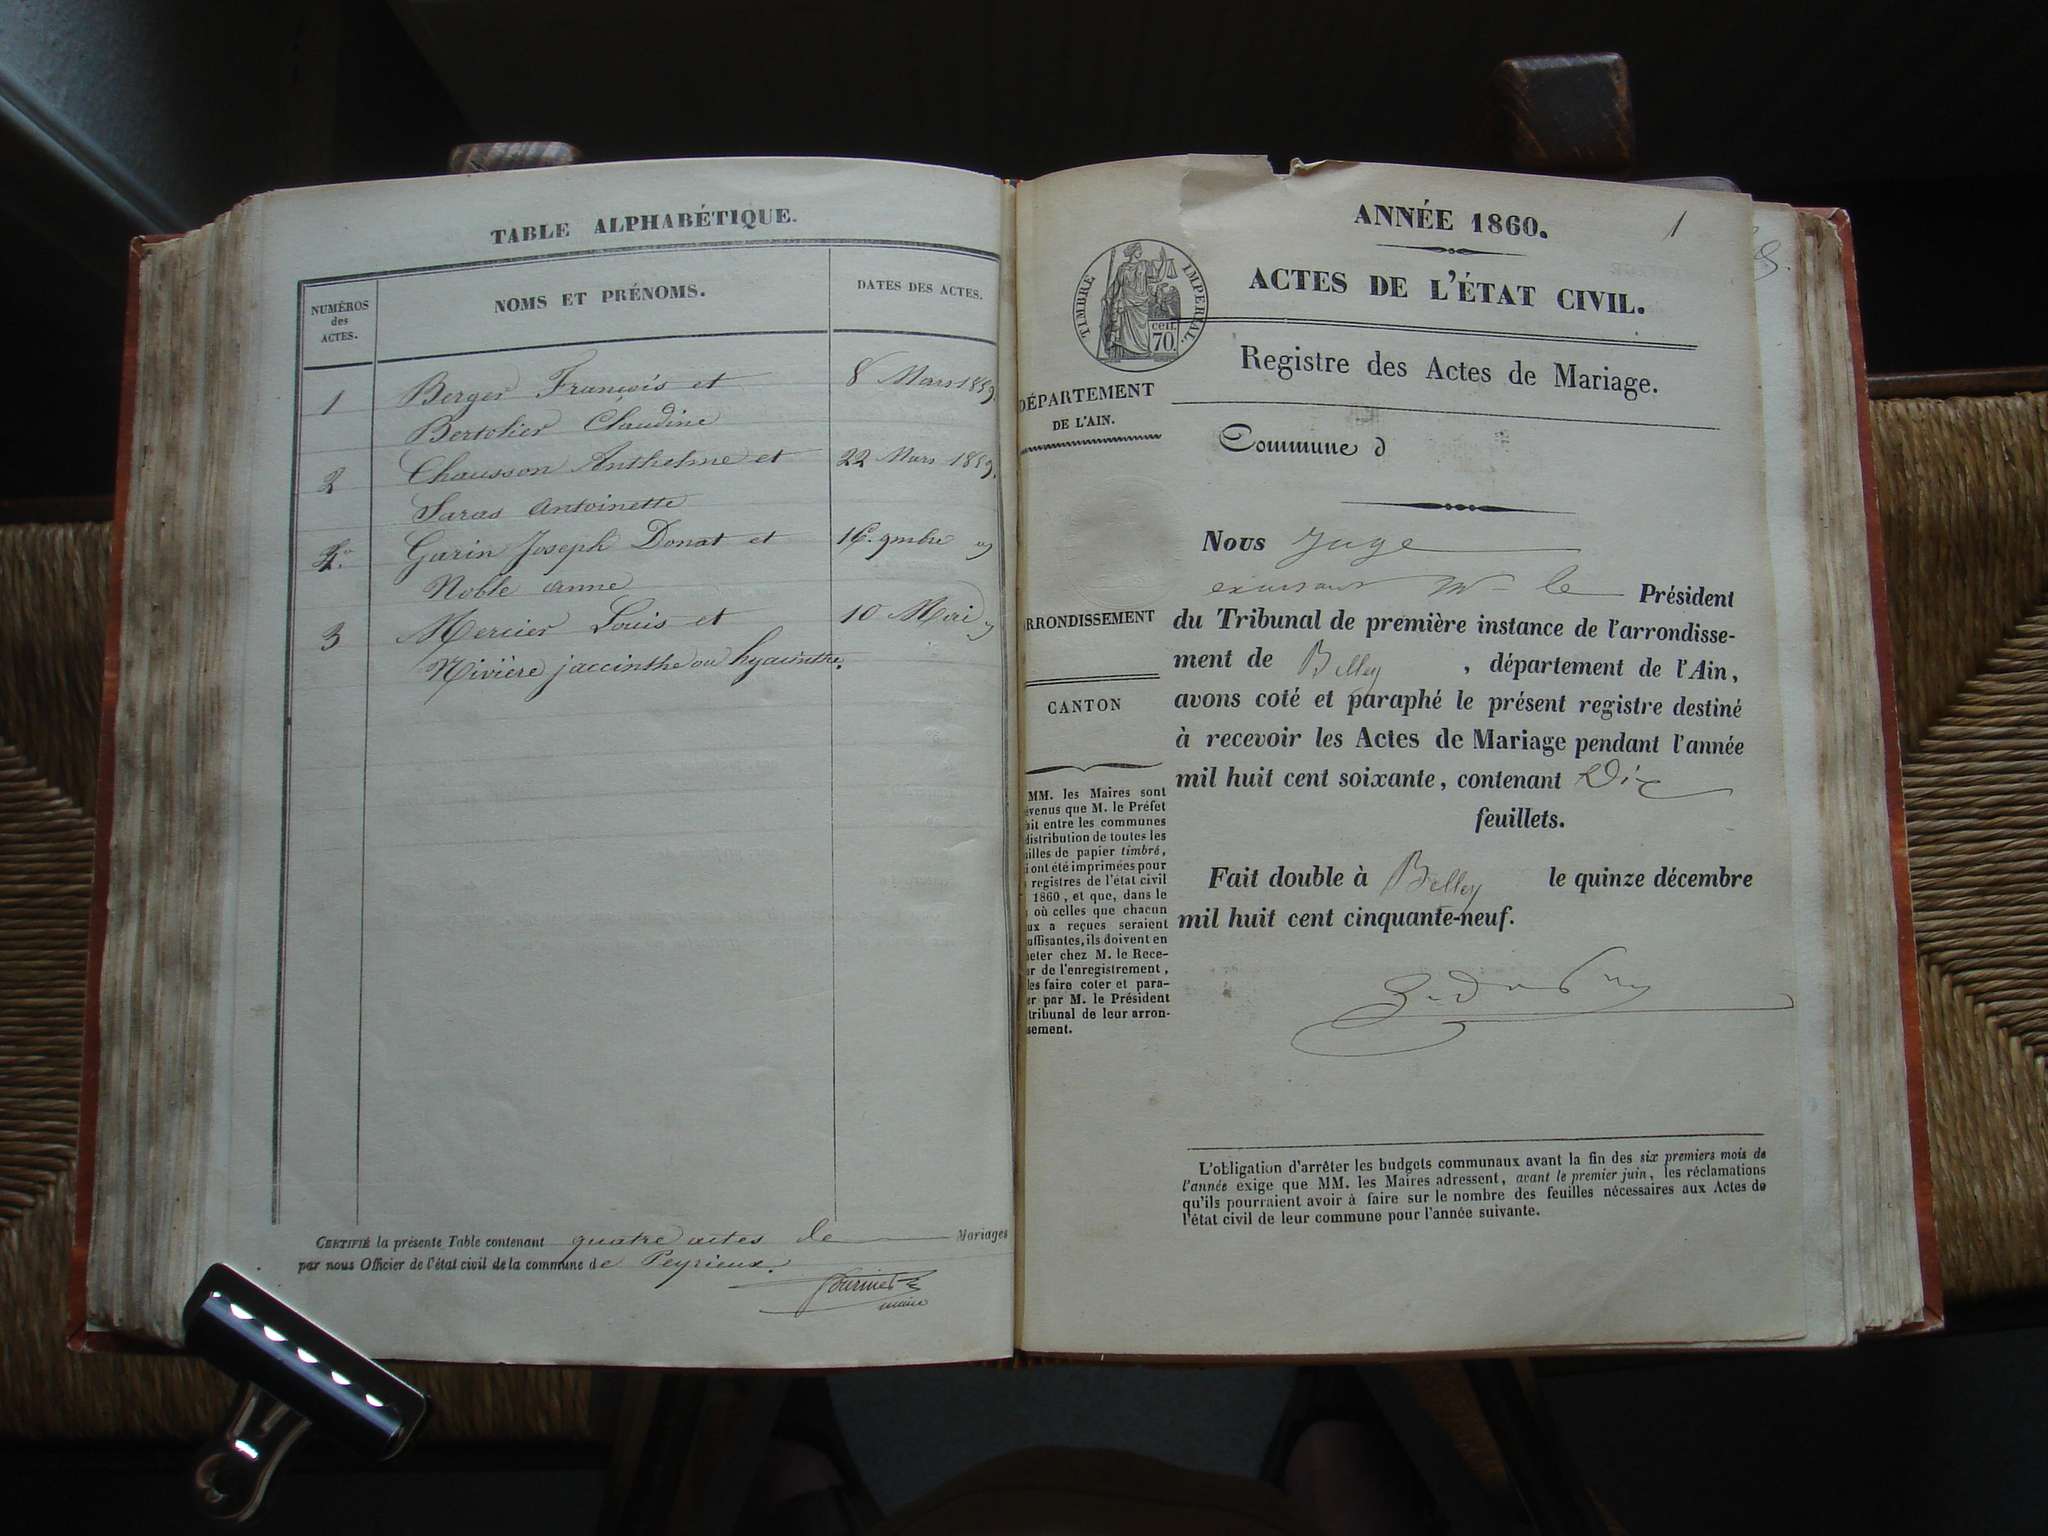 TABLE ALPHABÉTIQUE.
NUMÉROS
des
ACTES.
NOMS ET PRÉNOMS.
DATES DES ACTES.
1 Berger François et 8 Mars 1859.
Bertolier Claudine
2 Chausson Anthelme et 22 Mars 1859.
Saras Antoinette
4. Garin Joseph Donat et 16. 9mbre
Noble anne
3 Mercier Louis et 10 Mai
Rivière jaccinthe ou hyacinthe.
CERTIFIÉ la présente Table contenant quatre actes de Mariages
par nous Officier de l'état civil de la commune de Peyrieux.
Fournier
maire
ANNÉE 1860.
1
ACTES DE L'ÉTAT CIVIL.
TIMBRE IMPERIAL.
CEN.
70.
Registre des Actes de Mariage.
DÉPARTEMENT
DE L'AIN.
Commune d
Nous Juge
Mr le Président
du Tribunal de première instance de l'arrondisse-
ment de Belley , département de l'Ain,
avons coté et paraphé le présent registre destiné
à recevoir les Actes de Mariage pendant l'année
mil huit cent soixante, contenant Dix
feuillets.
Fait double à Belley le quinze décembre
mil huit cent cinquante-neuf.
RRONDISSEMENT
CANTON
MM. les Maires sont
evenus que M. le Préfet
ait entre les communes
distribution de toutes les
uilles de papier timbré,
i ont été imprimées pour
registres de l'état civil
1860, et que, dans le
où celles que chacun
ux a reçues seraient
uffisantes, ils doivent en
heter chez M. le Rece-
ur de l'enregistrement,
les faire coter et para-
er par M. le Président
tribunal de leur arron-
sement.
L'obligation d'arrêter les budgets communaux avant la fin des six premiers mois de
l'année exige que MM. les Maires adressent, avant le premier juin, les réclamations
qu'ils pourraient avoir à faire sur le nombre des feuilles nécessaires aux Actes de
l'état civil de leur commune pour l'année suivante.